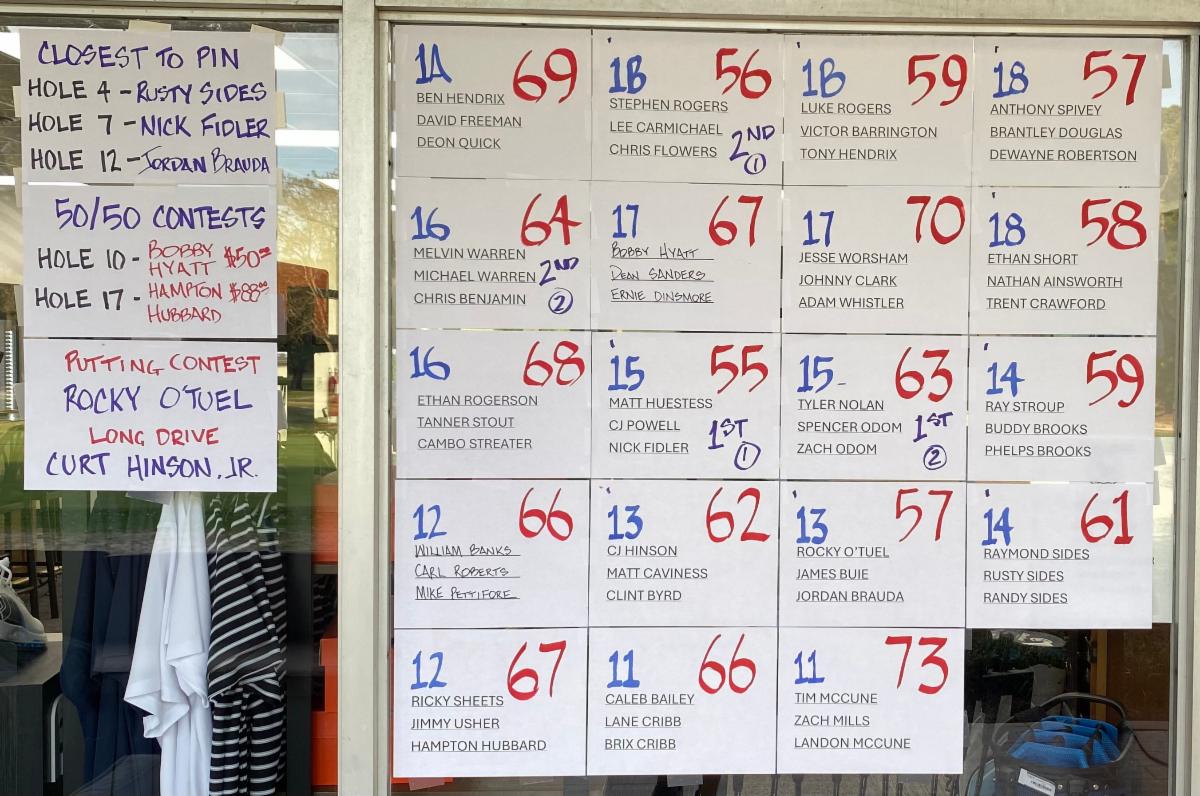 CLOSEST TO PIN
HOLE 4 - RUSTY SIDES
HOLE 7 - NICK FIDLER
HOLE 12 - JORDAN BRAUDA
50/50 CONTESTS
HOLE 10 - BOBBY HYATT $50.00
HOLE 17 - HAMPTON HUBBARD $88.00
PUTTING CONTEST
ROCKY O'TUEL
LONG DRIVE
CURT HINSON, JR.
1A 69
BEN HENDRIX
DAVID FREEMAN
DEON QUICK
1B 56
STEPHEN ROGERS
LEE CARMICHAEL
CHRIS FLOWERS
2ND
1
1B 59
LUKE ROGERS
VICTOR BARRINGTON
TONY HENDRIX
18 57
ANTHONY SPIVEY
BRANTLEY DOUGLAS
DEWAYNE ROBERTSON
16 64
MELVIN WARREN
MICHAEL WARREN
CHRIS BENJAMIN
2ND
2
17 67
BOBBY HYATT
DEAN SANDERS
ERNIE DINSMORE
17 70
JESSE WORSHAM
JOHNNY CLARK
ADAM WHISTLER
18 58
ETHAN SHORT
NATHAN AINSWORTH
TRENT CRAWFORD
16 68
ETHAN ROGERSON
TANNER STOUT
CAMBO STREATER
15 55
MATT HUESTESS
CJ POWELL
NICK FIDLER
1ST
1
15- 63
TYLER NOLAN
SPENCER ODOM
ZACH ODOM
1ST
2
14 59
RAY STROUP
BUDDY BROOKS
PHELPS BROOKS
12 66
WILLIAM BANKS
CARL ROBERTS
MIKE PETTIFORE
13 62
CJ HINSON
MATT CAVINESS
CLINT BYRD
13 57
ROCKY O'TUEL
JAMES BUIE
JORDAN BRAUDA
14 61
RAYMOND SIDES
RUSTY SIDES
RANDY SIDES
12 67
RICKY SHEETS
JIMMY USHER
HAMPTON HUBBARD
11 66
CALEB BAILEY
LANE CRIBB
BRIX CRIBB
11 73
TIM MCCUNE
ZACH MILLS
LANDON MCCUNE